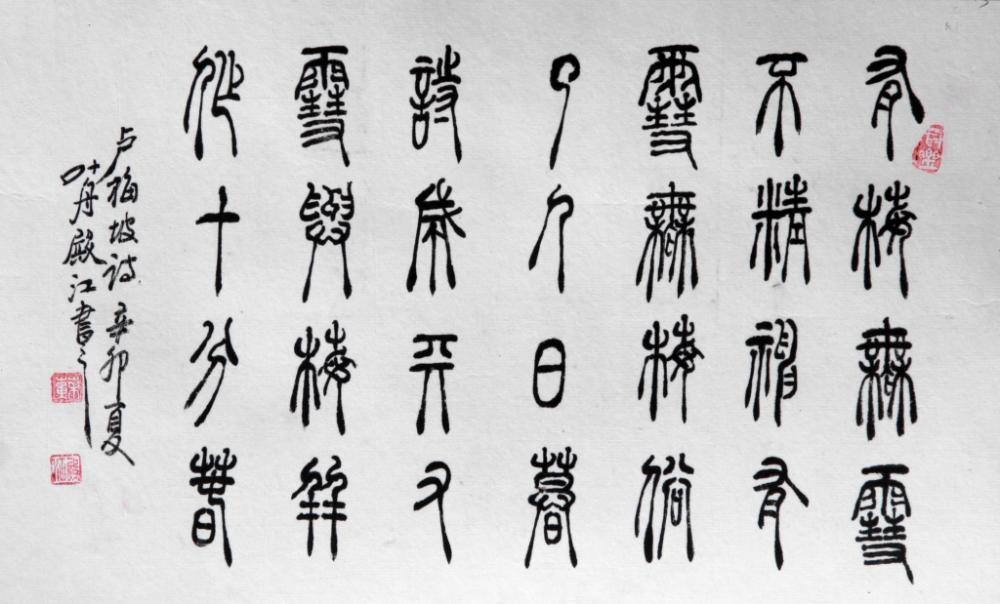 有梅無雪
不精神有
雪無梅俗
了人日暮
詩成天又
雪與梅並
作十分春
卢梅坡诗辛卯夏
殿江書之